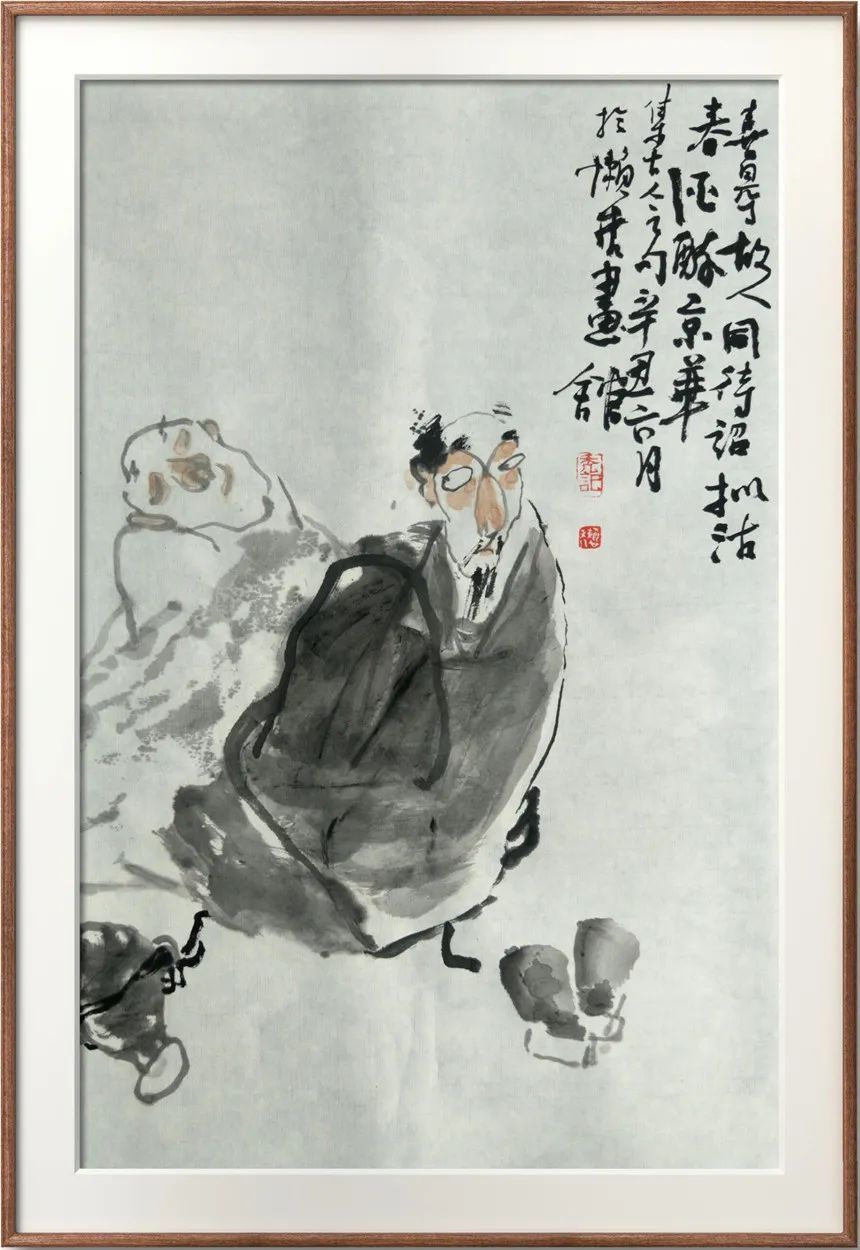 喜㝵故人同待詔拟沽
春酒醉京華
集古人之句辛丑六月
於懶畫館